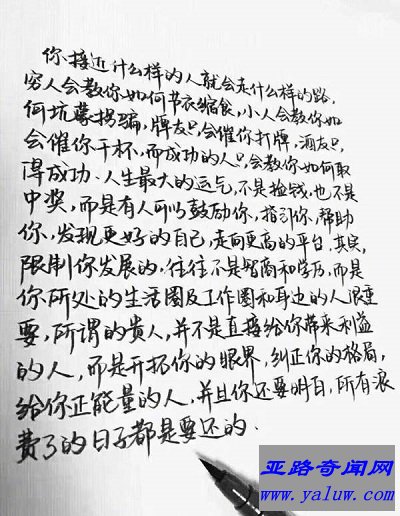 你接近什么样的人就会走什么样的路,
穷人会教你如何节衣缩食,小人会教你如
何坑蒙拐骗,牌友只会催你打牌,酒友只
会催你干杯,而成功的人只会教你如何取
得成功.人生最大的运气,不是捡钱,也不是
中奖,而是有人可以鼓励你,指引你,帮助
你,发现更好的自己,走向更高的平台.其实,
限制你发展的,往往不是智商和学历,而是
你所处的生活圈及工作圈和身边的人很重
要,所谓的贵人,并不是直接给你带来利益
的人,而是开拓你的眼界,纠正你的格局,
给你正能量的人,并且你还要明白,所有浪
费了的日子都是要还的.
亚路奇闻网
www.yaluw.com